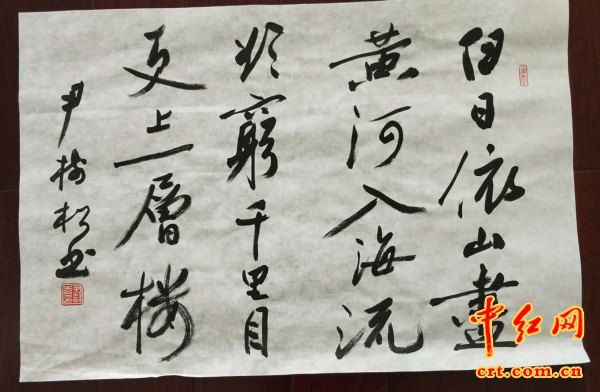 白日依山盡
黄河入海流
欲窮千里目
更上一層楼
尹树松书
中红网
crt.com.cn